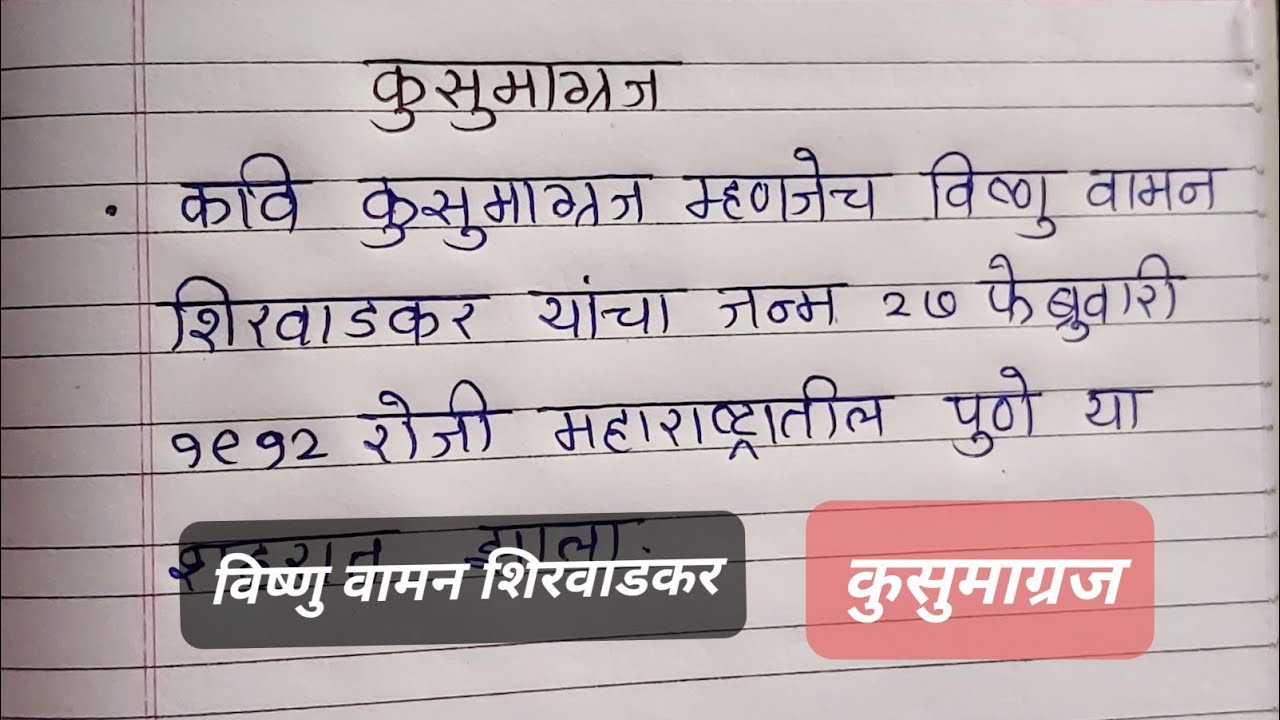 कुसुमाग्रज
• कवि कुसुमाग्रज म्हणजेच विष्णु वामन
शिरवाडकर यांचा जन्म २७ फेब्रुवारी
१९१२ रोजी महाराष्ट्रातील पुणे या
शहरात झाला.
विष्णु वामन शिरवाडकर
कुसुमाग्रज